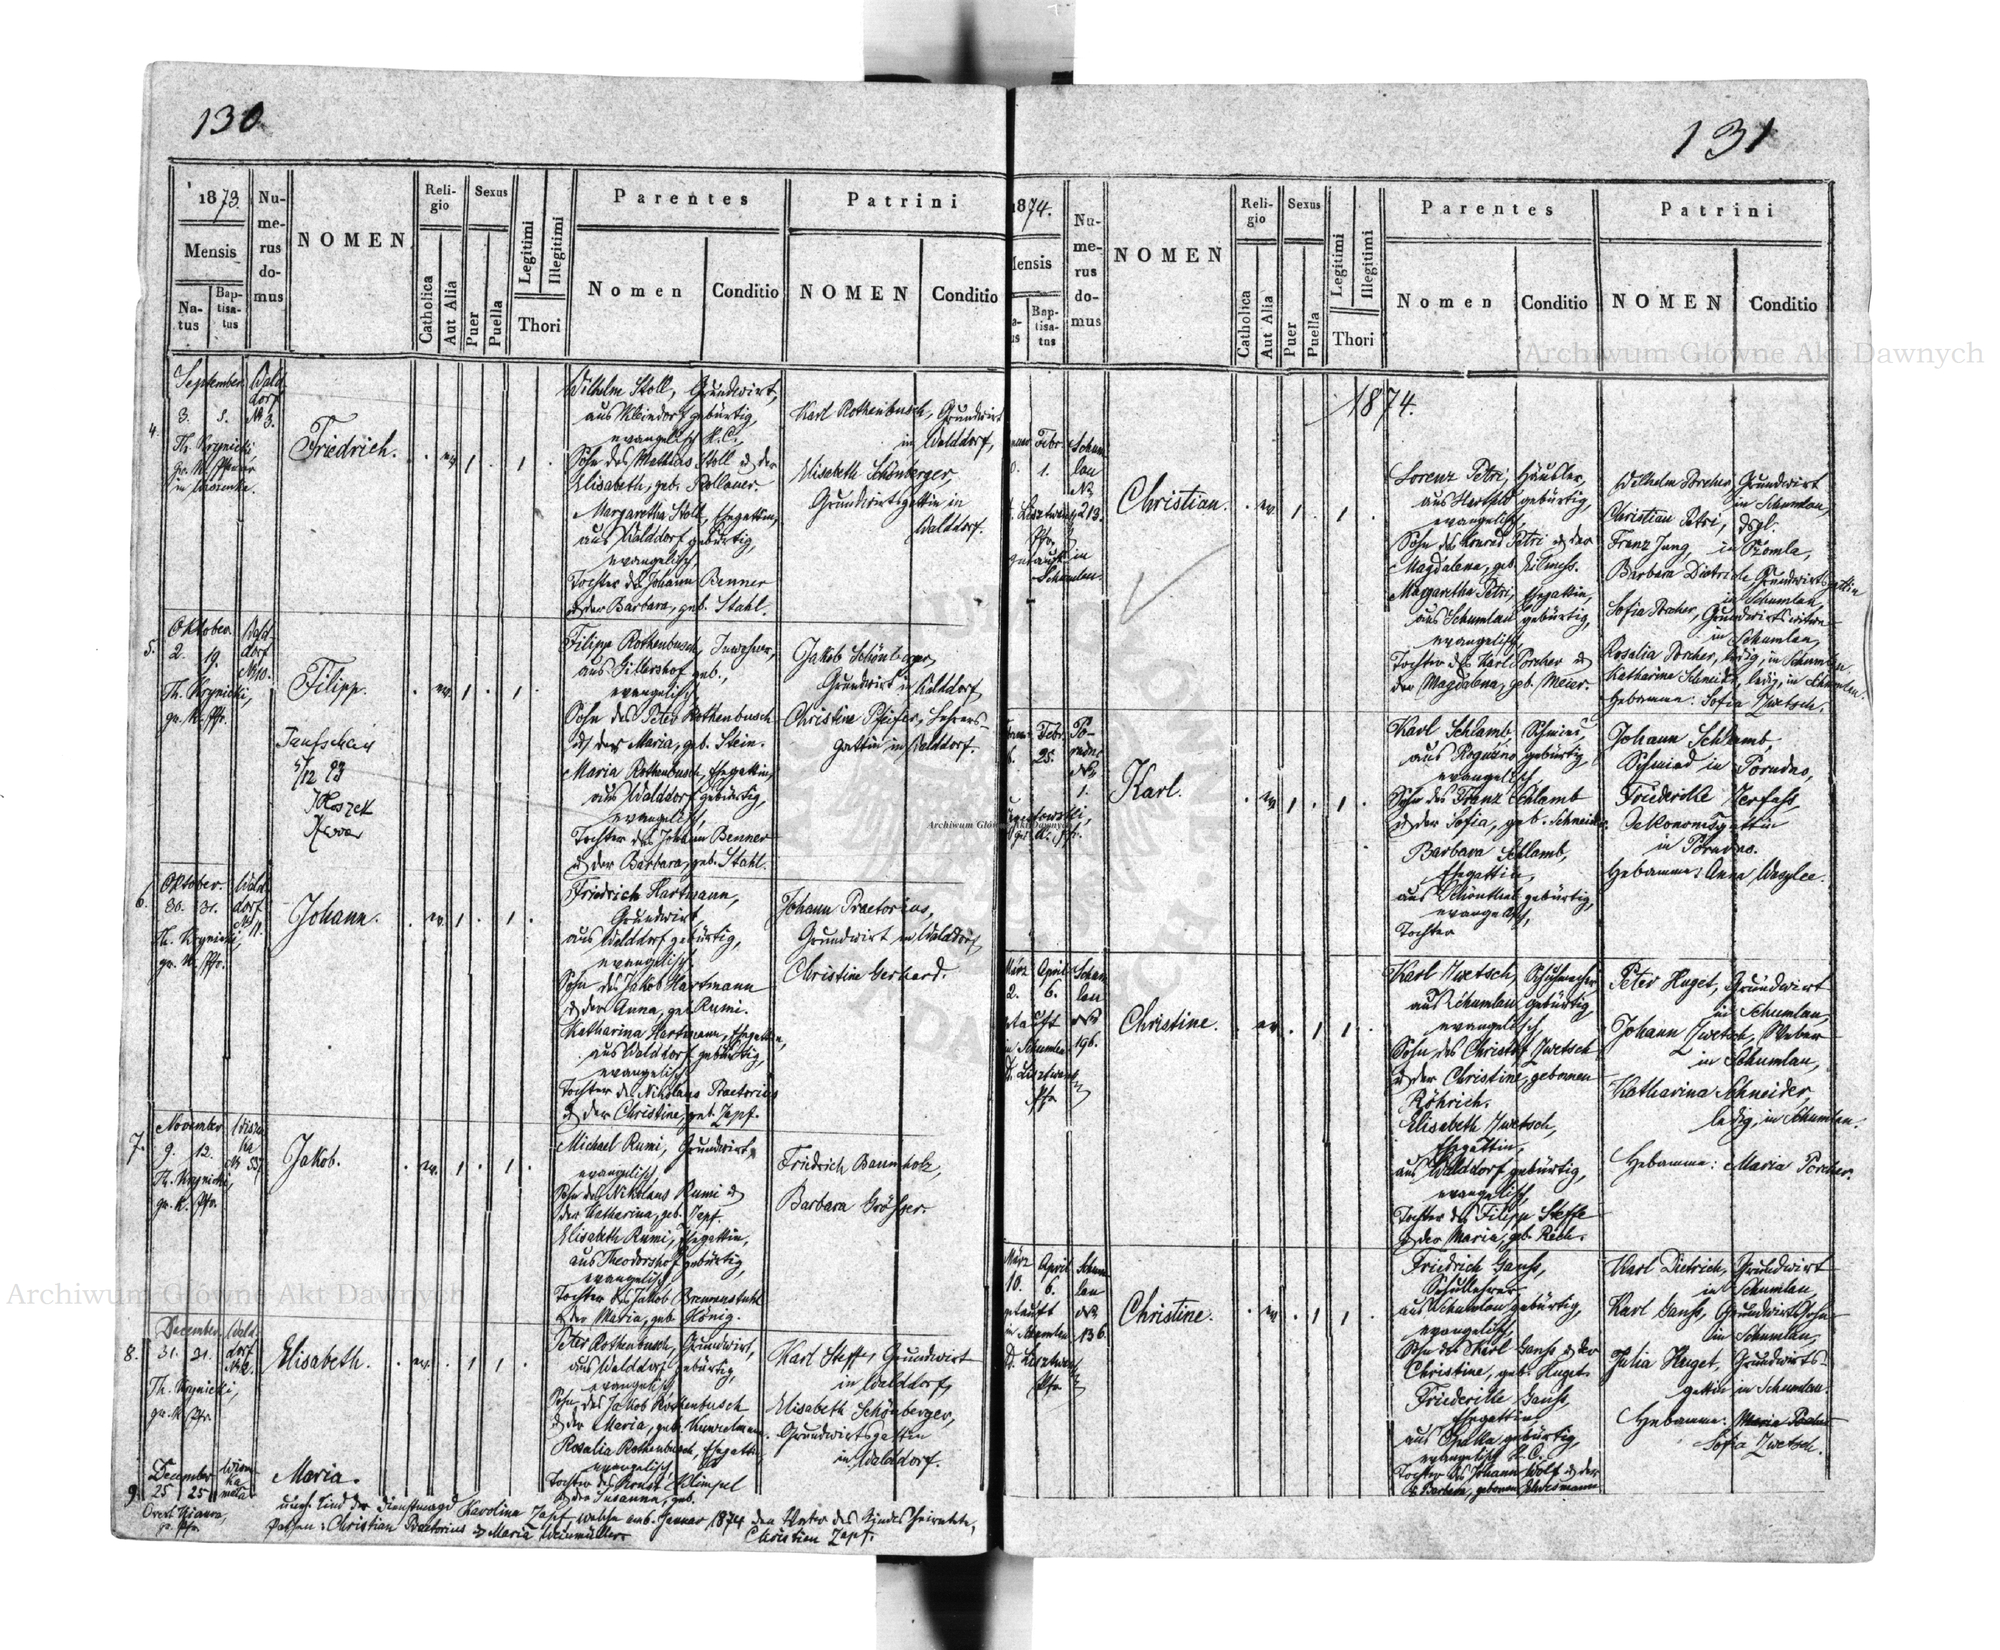 130
1873.
Mensis
Na-
tus
Bap-
tisa-
tus
Nu-
me-
rus
do-
mus
NOMEN
Reli-
gio
Catholica
Aut Alia
Sexus
Puer
Puella
Legitimi
Illegitimi
Thori
Parentes
Nomen
Conditio
Patrini
NOMEN
Conditio
4.
September
3. 5.
Wald
dorf
№ 3.
Th. Krynicki,
gr. K. Pfarrer
Friedrich.
ev
1
1
Wilhelm Stoll, Grundwirt,
aus gebürtig,
evangelisch H. C.,
Sohn des Mathias Stoll u der
Elisabeth, geb.
Margaretha Stoll, Ehegattin,
aus Walddorf gebürtig,
evangelisch
Tochter des Johann Benner
u der Barbara, geb. Stahl.
Karl Rothenbusch, Grundwirt
in Walddorf,
Elisabeth Schönberger,
Grundwirtsgattin in
Walddorf.
5.
Oktober.
2. 19.
Wald
dorf
№ 10.
Th. Krynicki,
gr. K. Pfr.
Filipp.
Taufschein
5/12 93
ev.
1
1
Filipp Rothenbusch, Inwohner,
aus Gillershof geb.,
evangelisch
Sohn des Peter Rothenbusch
u der Maria, geb. Stein.
Maria Rothenbusch, Ehegattin,
aus Walddorf gebürtig,
evangelisch,
Tochter des Johann Benner
u der Barbara, geb. Stahl.
Jakob Schönberger
Grundwirt in Walddorf
Christine Pfeifer, Lehrers-
gattin in Walddorf.
6.
Oktober.
30. 31.
Wald
dorf
№ 11.
Th. Krynicki,
gr. K. Pfr.
Johann.
ev.
1
1
Friedrich Hartmann,
Grundwirt,
aus Walddorf gebürtig,
evangelisch
Sohn des Jakob Hartmann
u der Anna, geb Rumi.
Katharina Hartmann, Ehegattin,
aus Walddorf gebürtig,
evangelisch
Tochter des Nikolaus Praetorius
u der Christine, geb. Zapf.
Johann Praetorius,
Grundwirt in Walddorf
Christine Gerhard.
7.
November
9. 12.
Th. Krynicki,
gr. K. Pfr.
Jakob.
ev.
1
1
Michael Rumi, Grundwirt,
evangelisch
Sohn des Nikolaus Rumi u
der Katharina, geb. Zapf.
Elisabeth Rumi, Ehegattin,
aus Theodorshof gebürtig,
evangelisch
Tochter des Jakob
u der Maria, geb. König.
Friedrich Baumholz,
Barbara
8.
December
31. 31.
Wald-
dorf
№ 2.
Th. Krynicki,
gr. K. Pfr.
Elisabeth.
ev.
1
1
Peter Rothenbusch, Grundwirt,
aus Walddorf gebürtig,
evangelisch
Sohn des Jakob Rothenbusch
u der Maria, geb.
Rosalia Rothenbusch, Ehegattin,
evangelisch
Tochter des Ernst Klimpel
u der Susanna, geb.
Karl Steff, Grundwirt
in Walddorf,
Elisabeth Schönberger,
Grundwirtsgattin
in Walddorf.
9.
December
25 25
Maria.
unehl. Kind der Dienstmagd Karolina Zapf, welche am 6. Januar 1874 den Vater des Kindes heiratete,
Pathen: Christian Praetorius u Maria Weinmüller Christian Zapf.
131
1874.
Mensis
Bap-
tisa-
tus
Nu-
me-
rus
do-
mus
NOMEN
Reli-
gio
Catholica
Aut Alia
Sexus
Puer
Puella
Legitimi
Illegitimi
Thori
Parentes
Nomen
Conditio
Patrini
NOMEN
Conditio
1874.
Febr.
1.
Schum
lau
№
213.
Pfr.
getauft in
Schumlau.
Christian.
ev.
1
1
Lorenz Petri, Häusler,
aus gebürtig,
evangelisch,
Sohn des Konrad Petri u der
Magdalena, geb.
Margaretha Petri, Ehegattin,
aus Schumlau gebürtig,
evangelisch,
Tochter des Karl Porcher u
der Magdalena, geb. Meier.
Wilhelm Porcher, Grundwirt
in Schumlau,
Christian Petri, dsgl.
Franz Jung, in
Barbara Dietrich, Grundwirtsgattin
in Schumlau,
Sofia Porcher, Grundwirtswitwe
in Schumlau,
Rosalia Porcher, ledig, in Schumlau
Katharina Schneider, ledig, in Schumlau.
Hebamme: Sofia Zwetsch.
Febr.
25.
Po-
rudno
№
1.
gr. K. Pfr.
Karl.
ev
1
1
Karl Schlamb, Schmied,
aus gebürtig,
evangelisch,
Sohn des Franz Schlamb
u der Sofia, geb. Schneider.
Barbara Schlamb,
Ehegattin,
aus Schönthal gebürtig,
evangelisch,
Tochter
Johann Schlamb,
Schmied in Porudno,
Friederike
Oekonomsgattin
in Porudno.
Hebamme: Anna Wasylec.
März April
2. 6.
getauft
in Schumlau
Pfr
Schum
lau
№
196.
Christine.
ev.
1
1
Karl Zwetsch, Schuhmacher
aus Schumlau gebürtig,
evangelisch,
Sohn des Christof Zwetsch
u der Christine, gebornen
Röhrich.
Elisabeth Zwetsch,
Ehegattin,
aus Walddorf gebürtig,
evangelisch,
Tochter des Filipp Steffe
u der Maria, geb. Rech.
Peter Huget, Grundwirt
in Schumlau,
Johann Zwetsch, Weber
in Schumlau,
Katharina Schneider,
ledig, in Schumlau.
Hebamme: Maria Porcher.
März April
10. 6.
getauft
in Schumlau
Pfr
Schum
lau
№
136.
Christine.
ev
1
1
Friedrich Ganß,
Schullehrer
aus Schumlau gebürtig,
evangelisch
Sohn des Karl Ganß u der
Christine, geb. Huget.
Friederike Ganß,
Ehegattin
aus gebürtig,
evangelisch H. C.
Tochter des Johann Wolf u der
Barbara, gebornen
Karl Dietrich, Grundwirt
in Schumlau,
Karl Ganß, Grundwirtssohn
in Schumlau,
Julia Huget, Grundwirts-
gattin in Schumlau.
Hebamme: Maria Porcher
Sofia Zwetsch.
Archiwum Główne Akt Dawnych
Archiwum Główne Akt Dawnych
Archiwum Główne Akt Dawnych